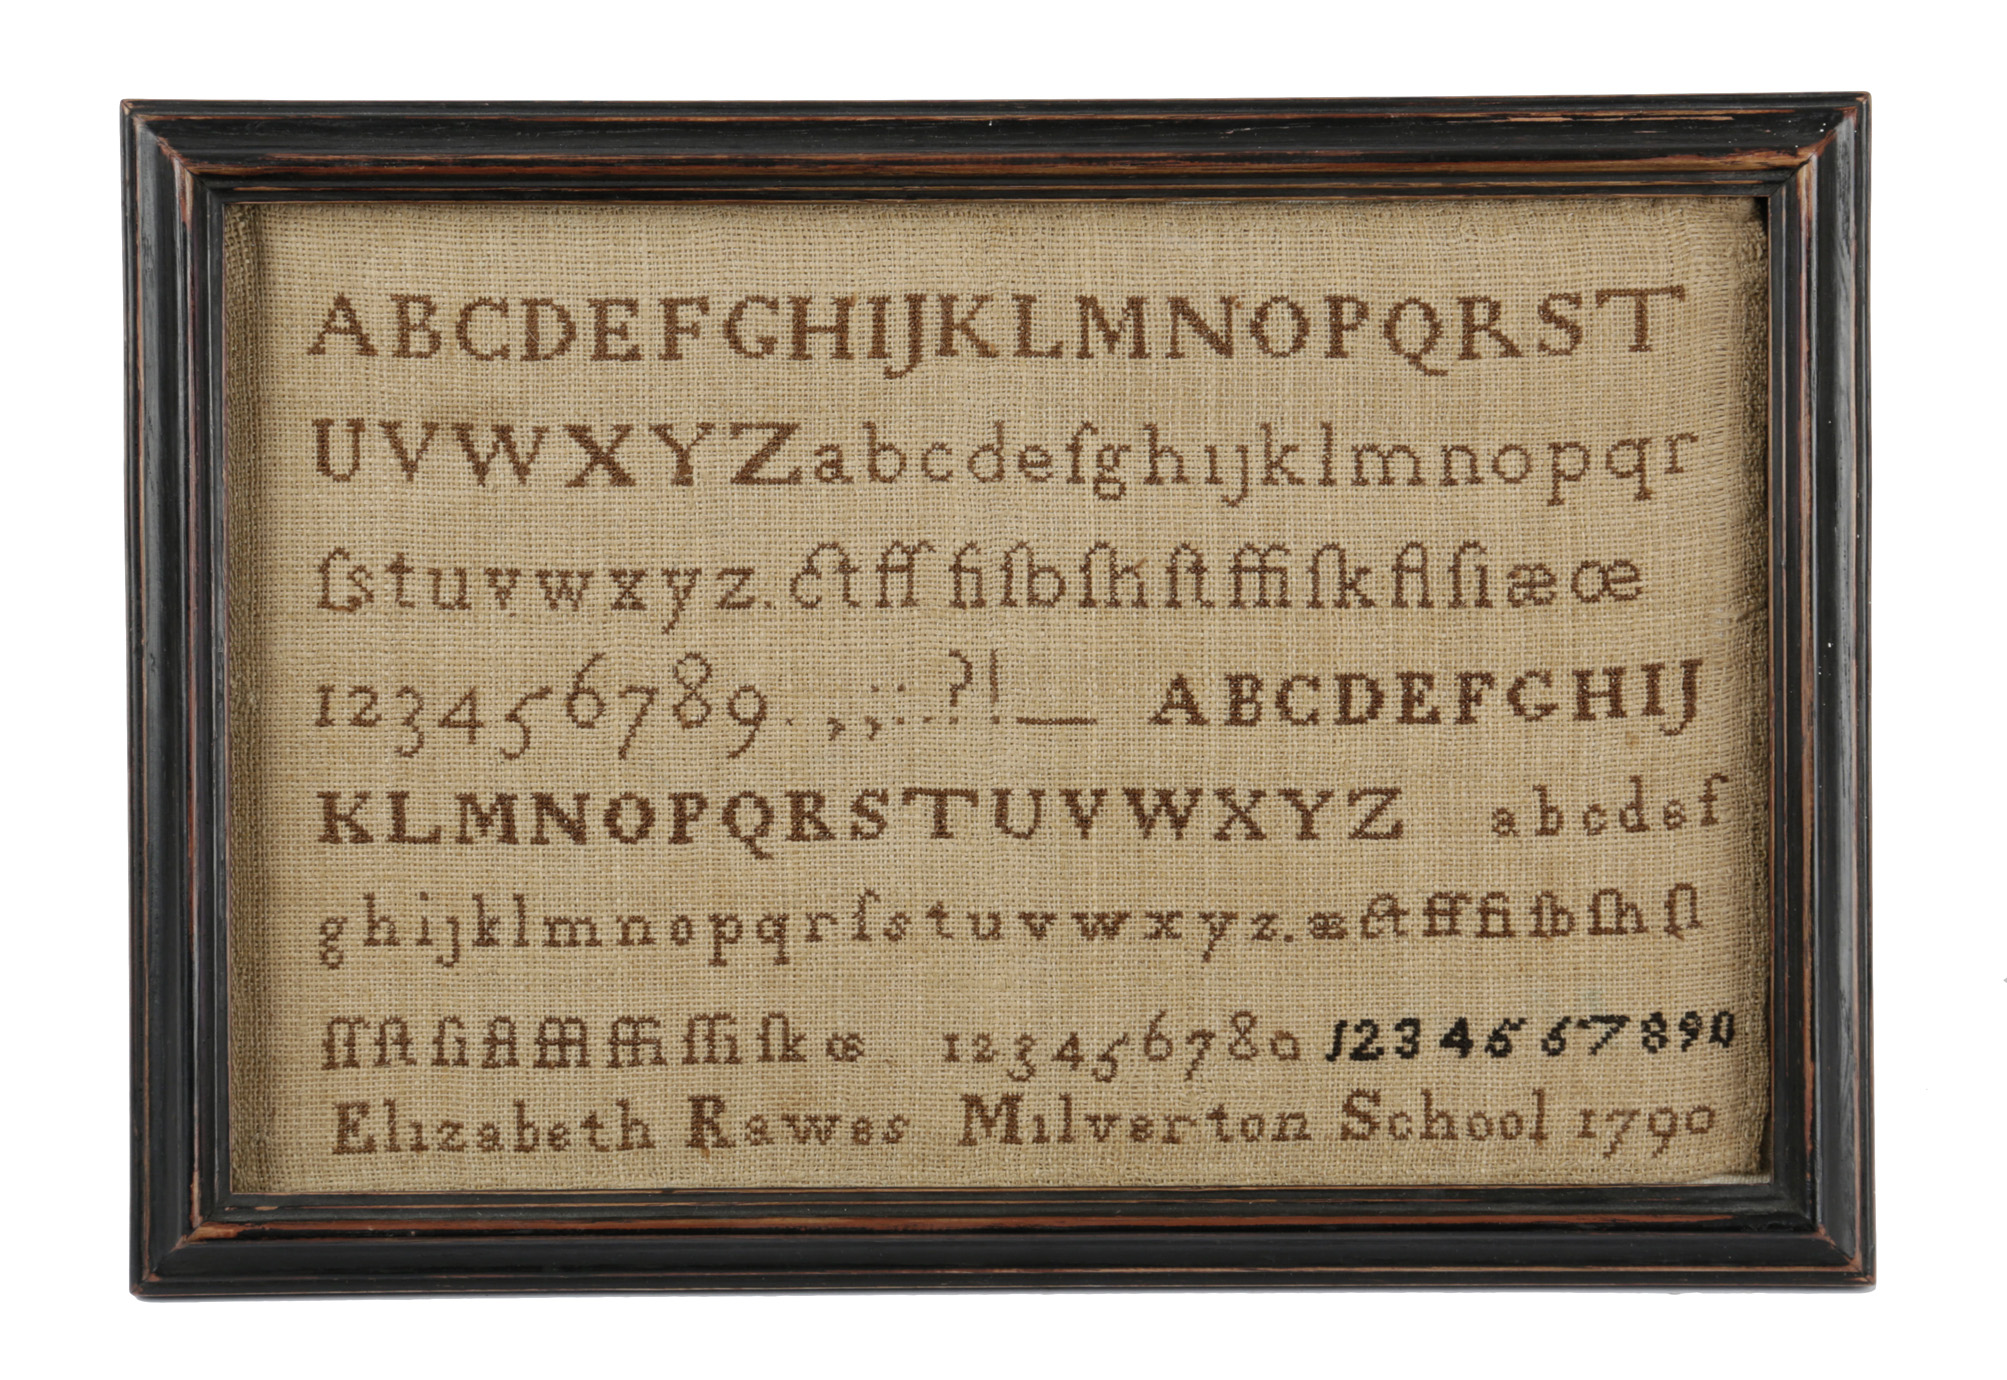 ABCDEFGHIJKLMNOPQRST
UVWXYZabcdefghıjklmnopqr
ſstuvwxyz.ctﬀﬁſbſhſtﬃſkﬂſiæœ
123456789.,;:.?!— ABCDEFGHIJ
KLMNOPQRSTUVWXYZ abcdef
ghijklmnopqrſstuvwxyz.æctﬀﬁſbſhſl
ſſſtſiﬂﬄﬃſſiſkœ 123456780 1234567890
Elızabeth Rawes Mılverton School 1790